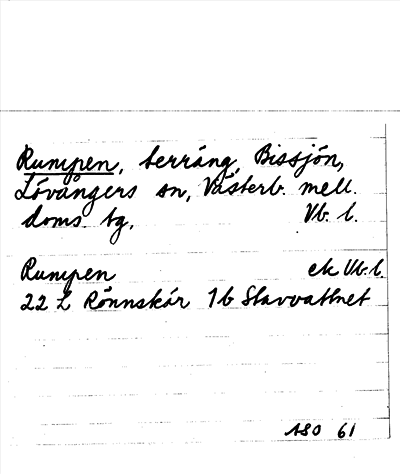 Rumpen, terräng, Bissjön,
Lövångers sn, Västerb. mell.
doms. tg. Vb. l.
Rumpen ek Vb. l.
22 L Rönnskär 1b Slavvattnet
180 61